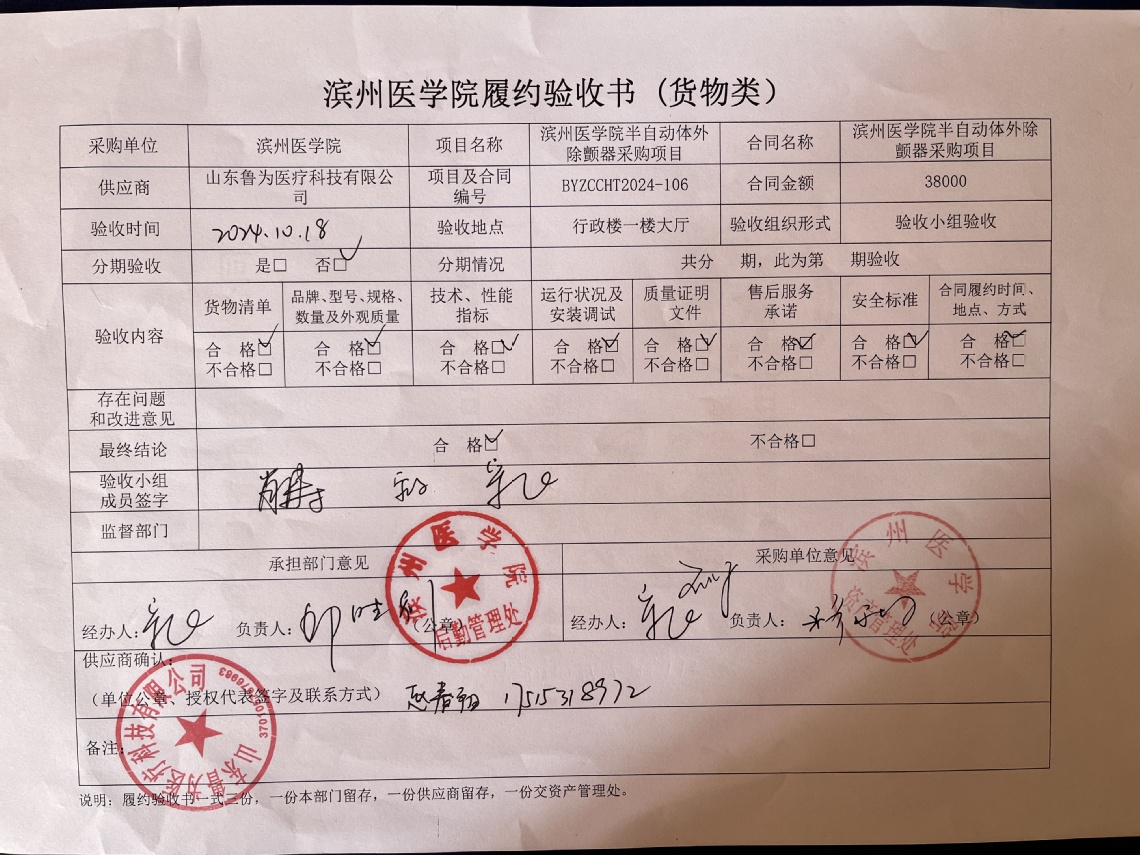 滨州医学院履约验收书（货物类）
采购单位 滨州医学院 项目名称 滨州医学院半自动体外除颤器采购项目 合同名称 滨州医学院半自动体外除颤器采购项目
供应商 山东鲁为医疗科技有限公司 项目及合同编号 BYZCCHT2024-106 合同金额 38000
验收时间 2024.10.18 验收地点 行政楼一楼大厅 验收组织形式 验收小组验收
分期验收 是□ 否☑ 分期情况 共分 期，此为第 期验收
验收内容 货物清单 品牌、型号、规格、数量及外观质量 技术、性能指标 运行状况及安装调试 质量证明文件 售后服务承诺 安全标准 合同履约时间、地点、方式
合 格☑ 合 格☑ 合 格☑ 合 格☑ 合 格☑ 合 格☑ 合 格☑ 合 格☑
不合格□ 不合格□ 不合格□ 不合格□ 不合格□ 不合格□ 不合格□ 不合格□
存在问题和改进意见
最终结论 合 格☑ 不合格□
验收小组成员签字
监督部门
承担部门意见 采购单位意见
经办人： 负责人： （公章） 经办人： 负责人： （公章）
滨州医学院
后勤管理处
滨州医学院
资产管理处
供应商确认：
（单位公章、授权代表签字及联系方式） 17515318972
山东鲁为医疗科技有限公司
备注：
说明：履约验收书一式三份，一份本部门留存，一份供应商留存，一份交资产管理处。